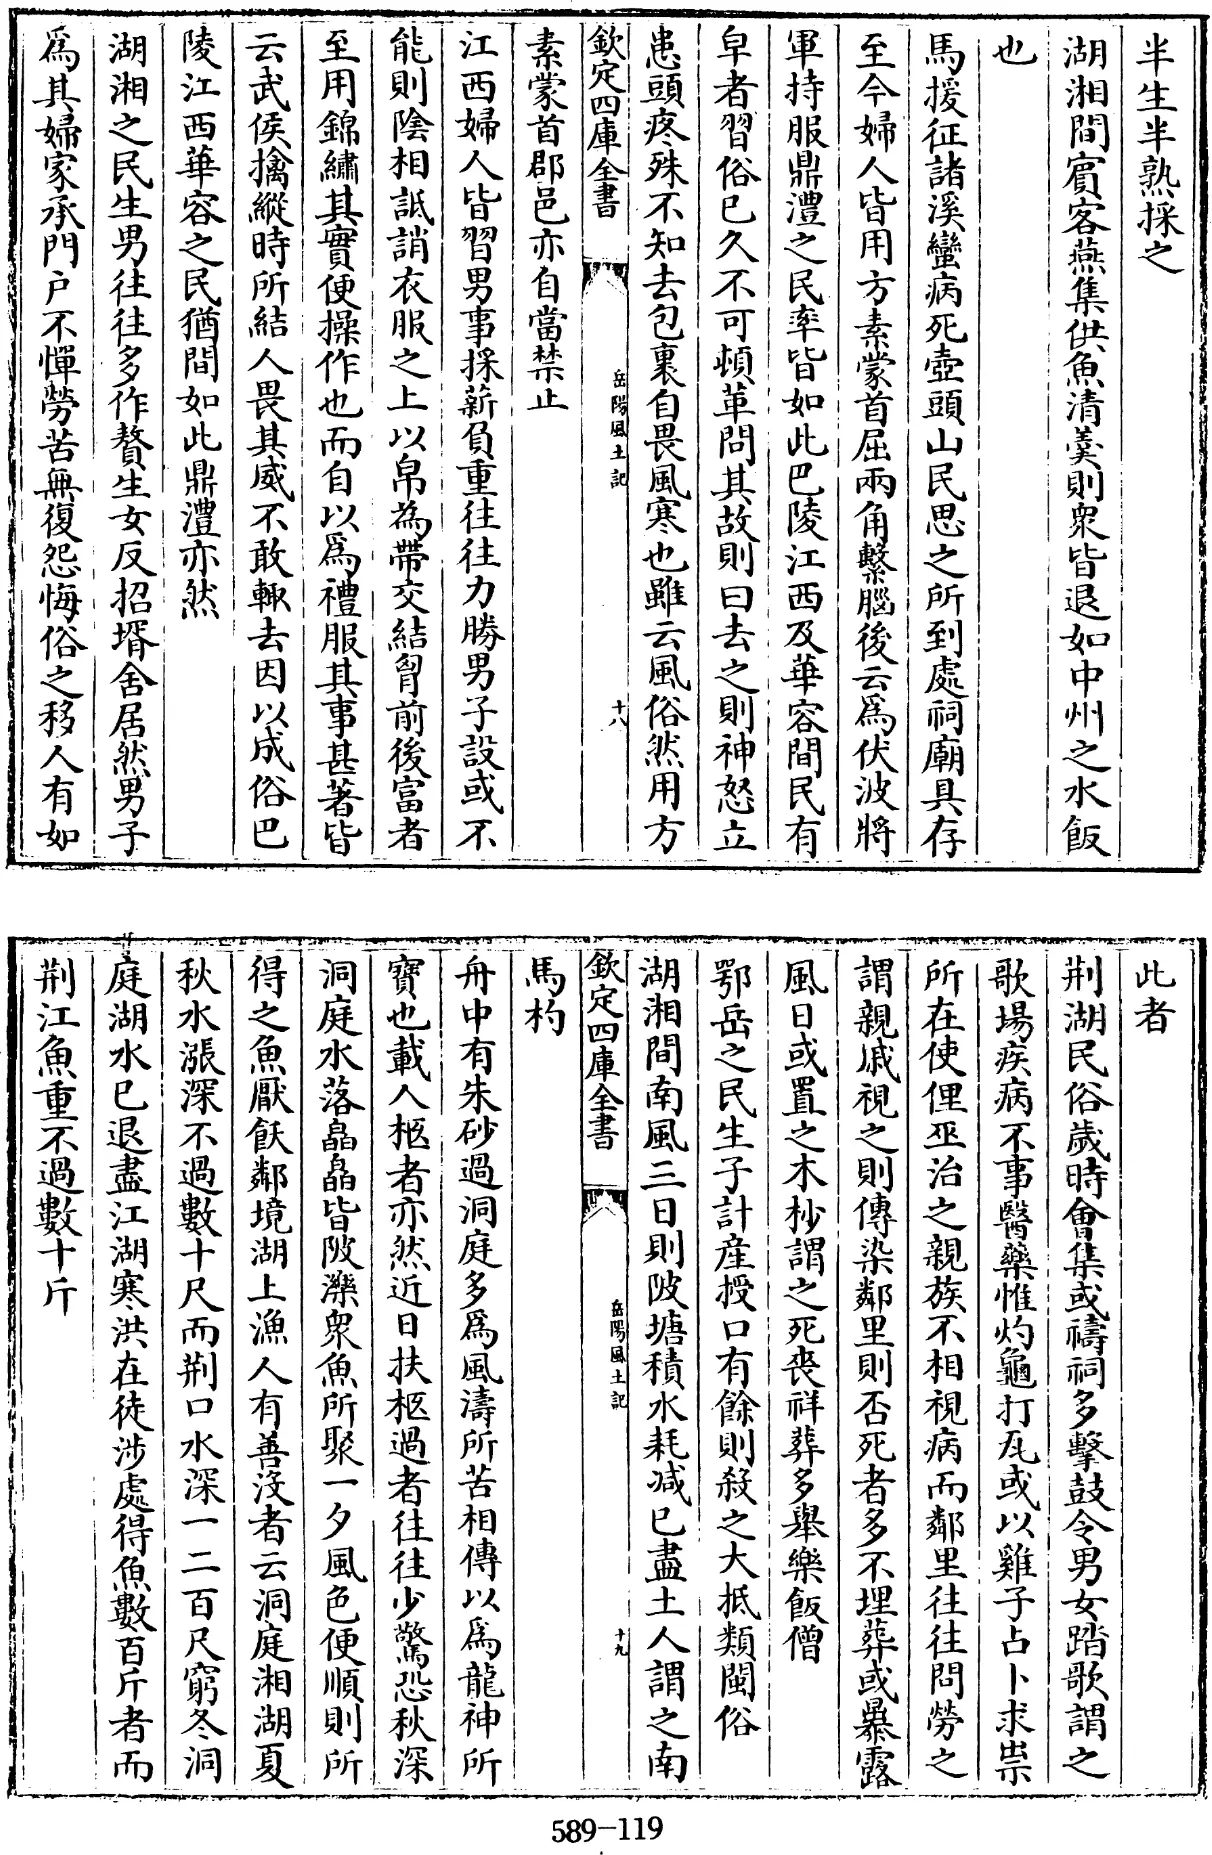 半生半熟採之
湖湘間賓客燕集供魚清羮則衆皆退如中州之水飯
也
馬援征諸溪蠻病死壺頭山民思之所到處祠廟具存
至今婦人皆用方素蒙首屈兩角繫腦後云爲伏波將
軍持服鼎澧之民率皆如此巴陵江西及華容間民有
皁者習俗已久不可頓革問其故則曰去之則神怒立
患頭疼殊不知去包裹自畏風寒也雖云風俗然用方
欽定四庫全書
岳陽風土記
十八
素蒙首郡邑亦自當禁止
江西婦人皆習男事採薪負重往往力勝男子設或不
能則陰相詆誚衣服之上以帛為帶交結胷前後富者
至用錦繡其實便操作也而自以爲禮服其事甚著皆
云武侯擒縱時所結人畏其威不敢輒去因以成俗巴
陵江西華容之民猶間如此鼎澧亦然
湖湘之民生男往往多作贅生女反招壻舍居然男子
爲其婦家承門户不憚勞苦無復怨悔俗之移人有如
此者
荆湖民俗歲時會集或禱祠多擊鼓令男女踏歌謂之
歌場疾病不事醫藥惟灼龜打瓦或以雞子占卜求祟
所在使俚巫治之親族不相視病而鄰里往往問勞之
謂親戚視之則傳染鄰里則否死者多不埋葬或暴露
風日或置之木杪謂之死喪祥葬多舉樂飯僧
鄂岳之民生子計産授口有餘則殺之大抵類閩俗
湖湘間南風三日則陂塘積水耗减已盡土人謂之南
欽定四庫全書
岳陽風土記
十九
馬杓
舟中有朱砂過洞庭多爲風濤所苦相傳以爲龍神所
寶也載人柩者亦然近日扶柩過者往往少驚恐秋深
洞庭水落皛皛皆陂濼衆魚所聚一夕風色便順則所
得之魚厭飫鄰境湖上漁人有善没者云洞庭湘湖夏
秋水漲深不過數十尺而荆口水深一二百尺窮冬洞
庭湖水已退盡江湖寒洪在徒涉處得魚數百斤者而
荆江魚重不過數十斤
589-119